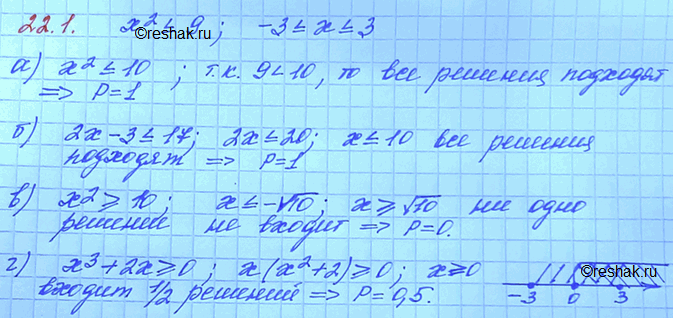 22.1. x² ≤ 9; -3 ≤ x ≤ 3
©reshak.ru
а) x² ≤ 10 ; т.к. 9 < 10, то все решения подходят
=> P = 1
б) 2x - 3 ≤ 17; 2x ≤ 20; x ≤ 10 все решения
подходят => P = 1
в) x² ≥ 10; x ≤ -√10; x ≥ √10 ни одно
решение не входит => P = 0.
г) x³ + 2x ≥ 0; x(x² + 2) ≥ 0; x ≥ 0
входит 1/2 решений => P = 0,5.
-3 0 3
©reshak.ru